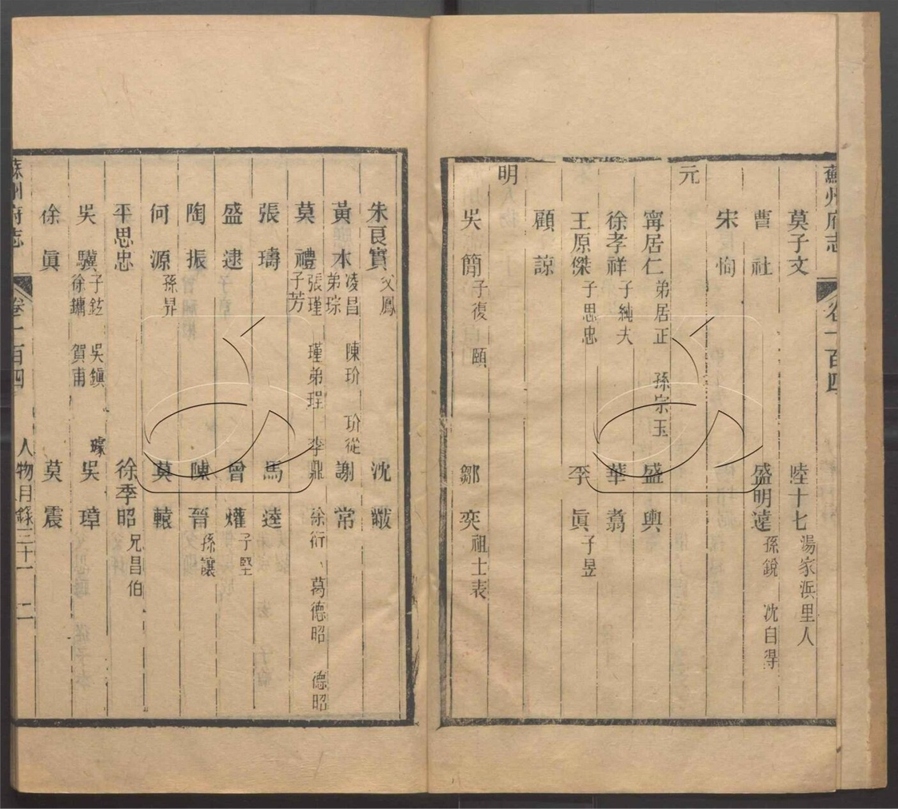 蘇州府志 卷一百四
莫子文 陸十七 湯家浜里人
曹社 盛明遠 孫鏡 沈自得
宋恂
元
甯居仁 弟居正 孫宗玉 盛輿
徐孝祥 子純夫 華翥
王原傑 子思忠 李眞 子昱
顧諒
明
吳簡 子復 頤 鄒奕 祖士表
朱良實 父鳳 沈
黃本 凌昌 弟琮 陳玠 玠從 謝常
莫禮 張瑾 子芳 瑾弟珵 李鼎 徐衍 葛德昭 德昭
張璹 馬逵
盛逮 曾爟 子堅
陶振 陳晉 孫讓
何源 孫昇 莫轅
平思忠 徐季昭 兄昌伯
吳驥 子鉉 徐鏞 吳鎭 賀甫 璩 吳璋
徐眞 莫震
蘇州府志 卷一百四 人物目錄三十一 二